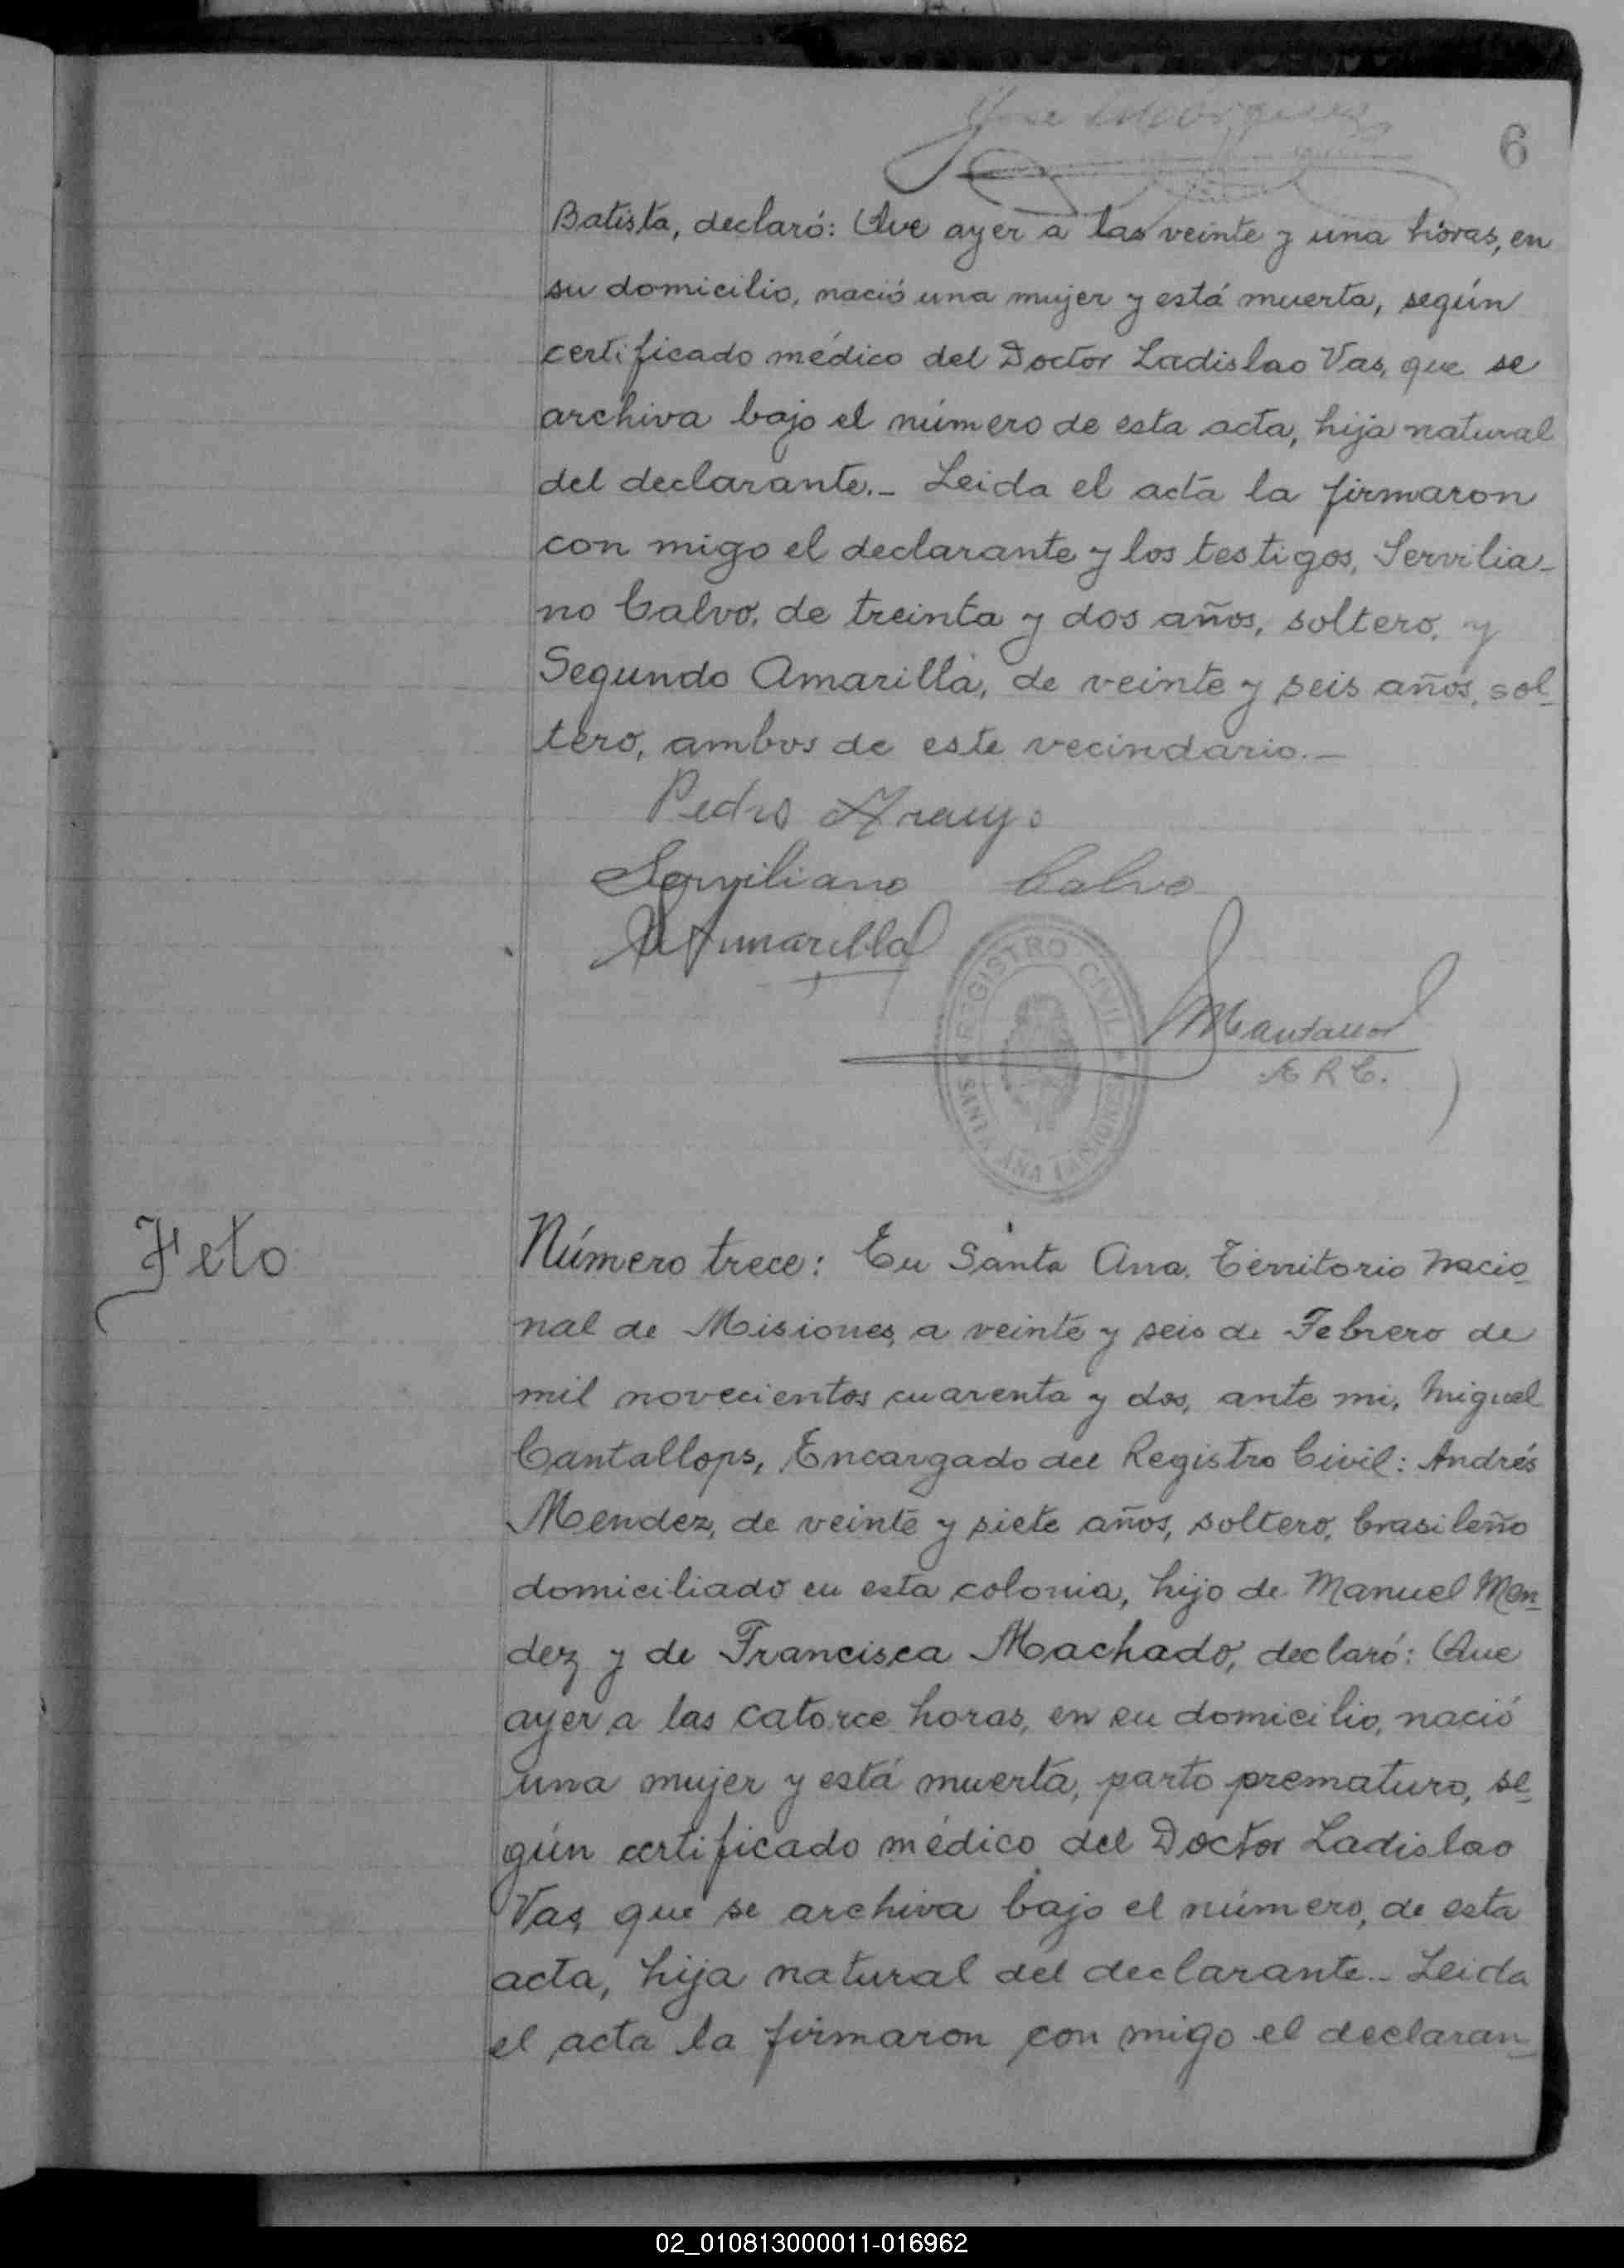 6
Batista, declaró: Que ayer a las veinte y una horas, en
su domicilio, nació una mujer y está muerta, según
certificado médico del Doctor Ladislao Vas, que se
archiva bajo el número de esta acta, hija natural
del declarante.- Leida el acta la firmaron
con migo el declarante y los testigos, Servilia-
no Calvo, de treinta y dos años, soltero, y
Segundo Amarilla, de veinte y seis años, sol-
tero, ambos de este vecindario.-
Pedro Araujo
Serviliano Calvo
Amarilla
REGISTRO CIVIL
SANTA ANA (MISIONES)
E R C.
Feto
Número trece: En Santa Ana, Territorio Nacio-
nal de Misiones, a veinte y seis de Febrero de
mil novecientos cuarenta y dos, ante mi, Miguel
Cantallops, Encargado del Registro Civil: Andrés
Mendez, de veinte y siete años, soltero, brasileño
domiciliado en esta colonia, hijo de Manuel Men-
dez y de Francisca Machado, declaró: Que
ayer a las catorce horas, en su domicilio, nació
una mujer y está muerta, parto prematuro, se-
gún certificado médico del Doctor Ladislao
Vas, que se archiva bajo el número, de esta
acta, hija natural del declarante.- Leida
el acta la firmaron con migo el declaran-
02_010813000011-016962